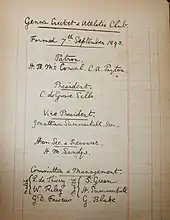 Genoa Cricket & Athletic Club.
Formed 7th September 1893
Patron
H.B. M's Consul C.A. Payton
President.
C. de Grave Sells
Vice President.
Jonathan Summerhill Sen.
Hon Sec & Treasurer
H.M. Sandys
Committee & Management
De Thierry S. Green
W. Riley H. Summerhill
G. D. Fawcus G. Blake